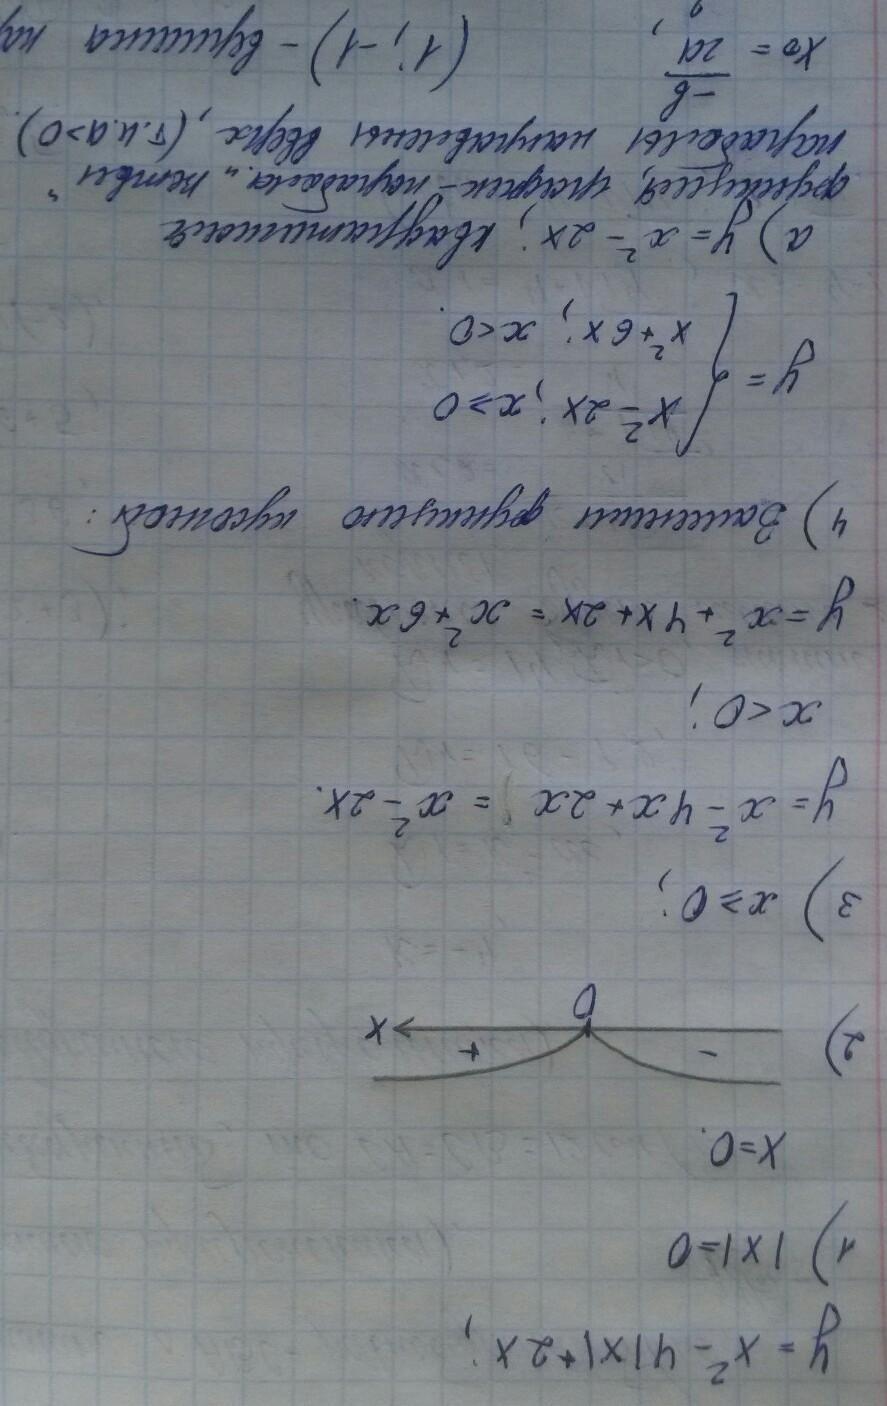 y = x² - 4|x| + 2x ;
1) |x| = 0
x = 0.
2) - + 0 x
3) x ≥ 0 ;
y = x² - 4x + 2x = x² - 2x.
x < 0 ;
y = x² + 4x + 2x = x² + 6x.
4) Запишем функцию кусочной :
y = { x² - 2x ; x ≥ 0
x² + 6x ; x < 0.
а) y = x² - 2x ; квадратичная
функция, график - парабола. "Ветви"
параболы направлены вверх, (т.к. a > 0)
x₀ = -b/2a ; (1 ; -1) - вершина